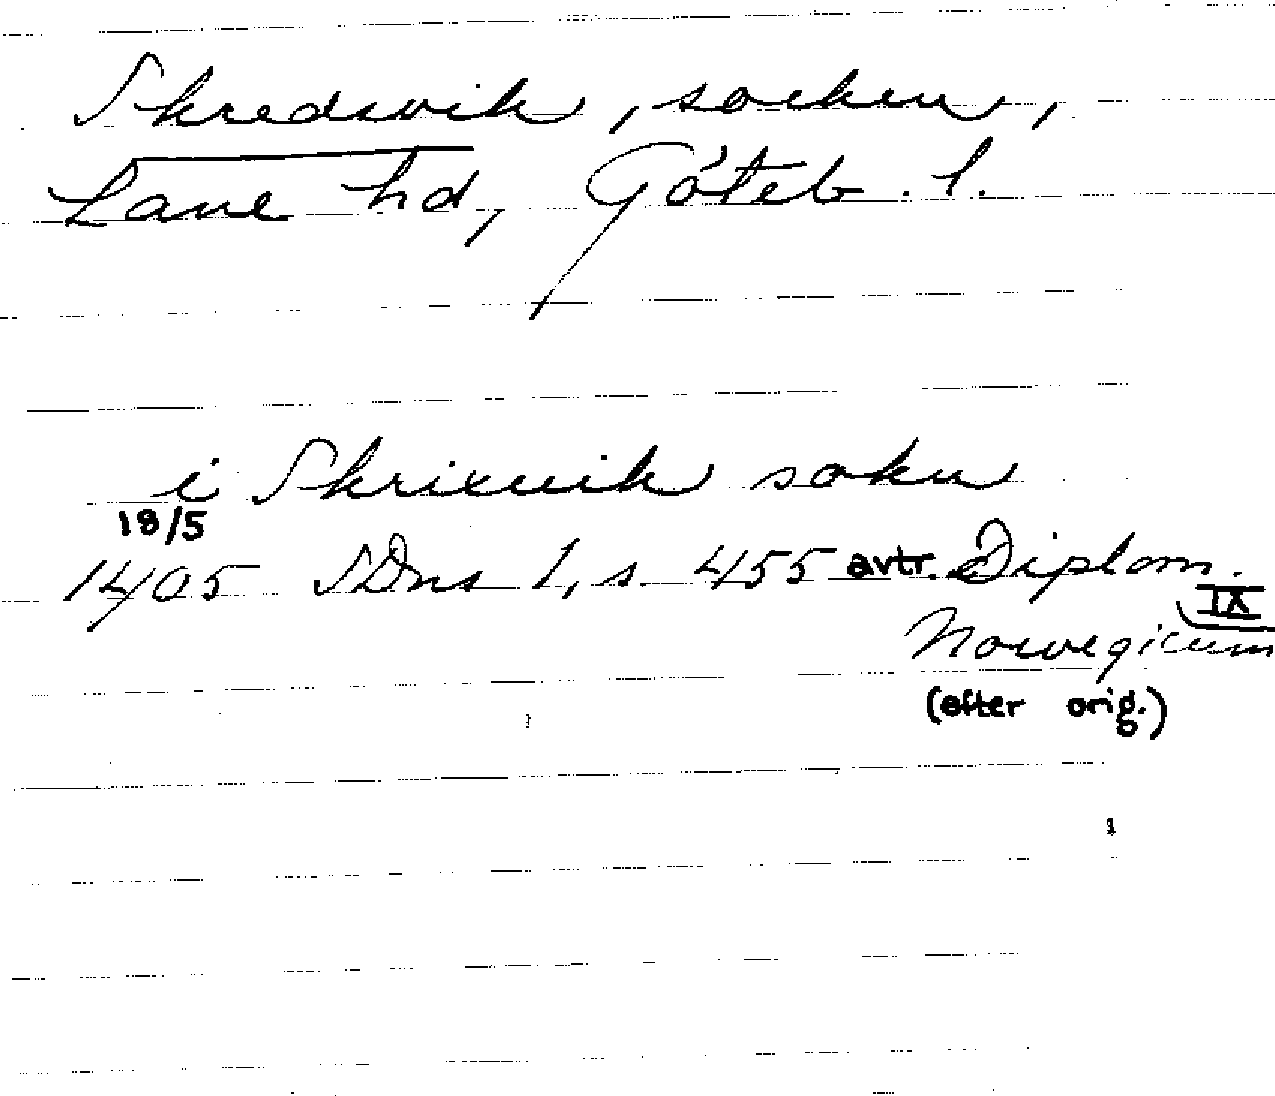 Skredsvik, socken,
Lane hd, Göteb. l.
i Skrixuik sokn
18/5
1405 SDns 1, s. 455 avtr. Diplom.
Norwegicum IX
(efter orig.)